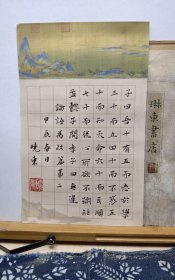 琳東書店
子曰吾十有五而志于學
三十而立四十而不惑五
十而知天命六十而耳順
七十而從心所欲不踰矩
孟懿子問孝子曰無違
論語為政篇第二
甲辰春日
曉東